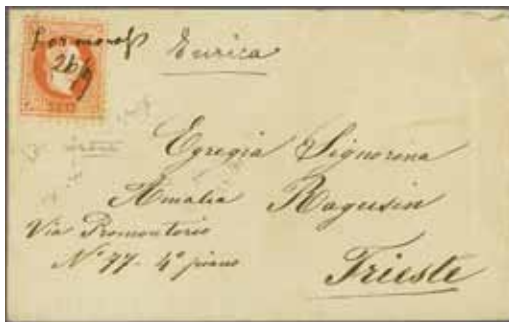 Enrica
26/4
Egregia Signorina
Amalia Ragusin
Via Promontorio
N° 77 - 4° piano
Trieste